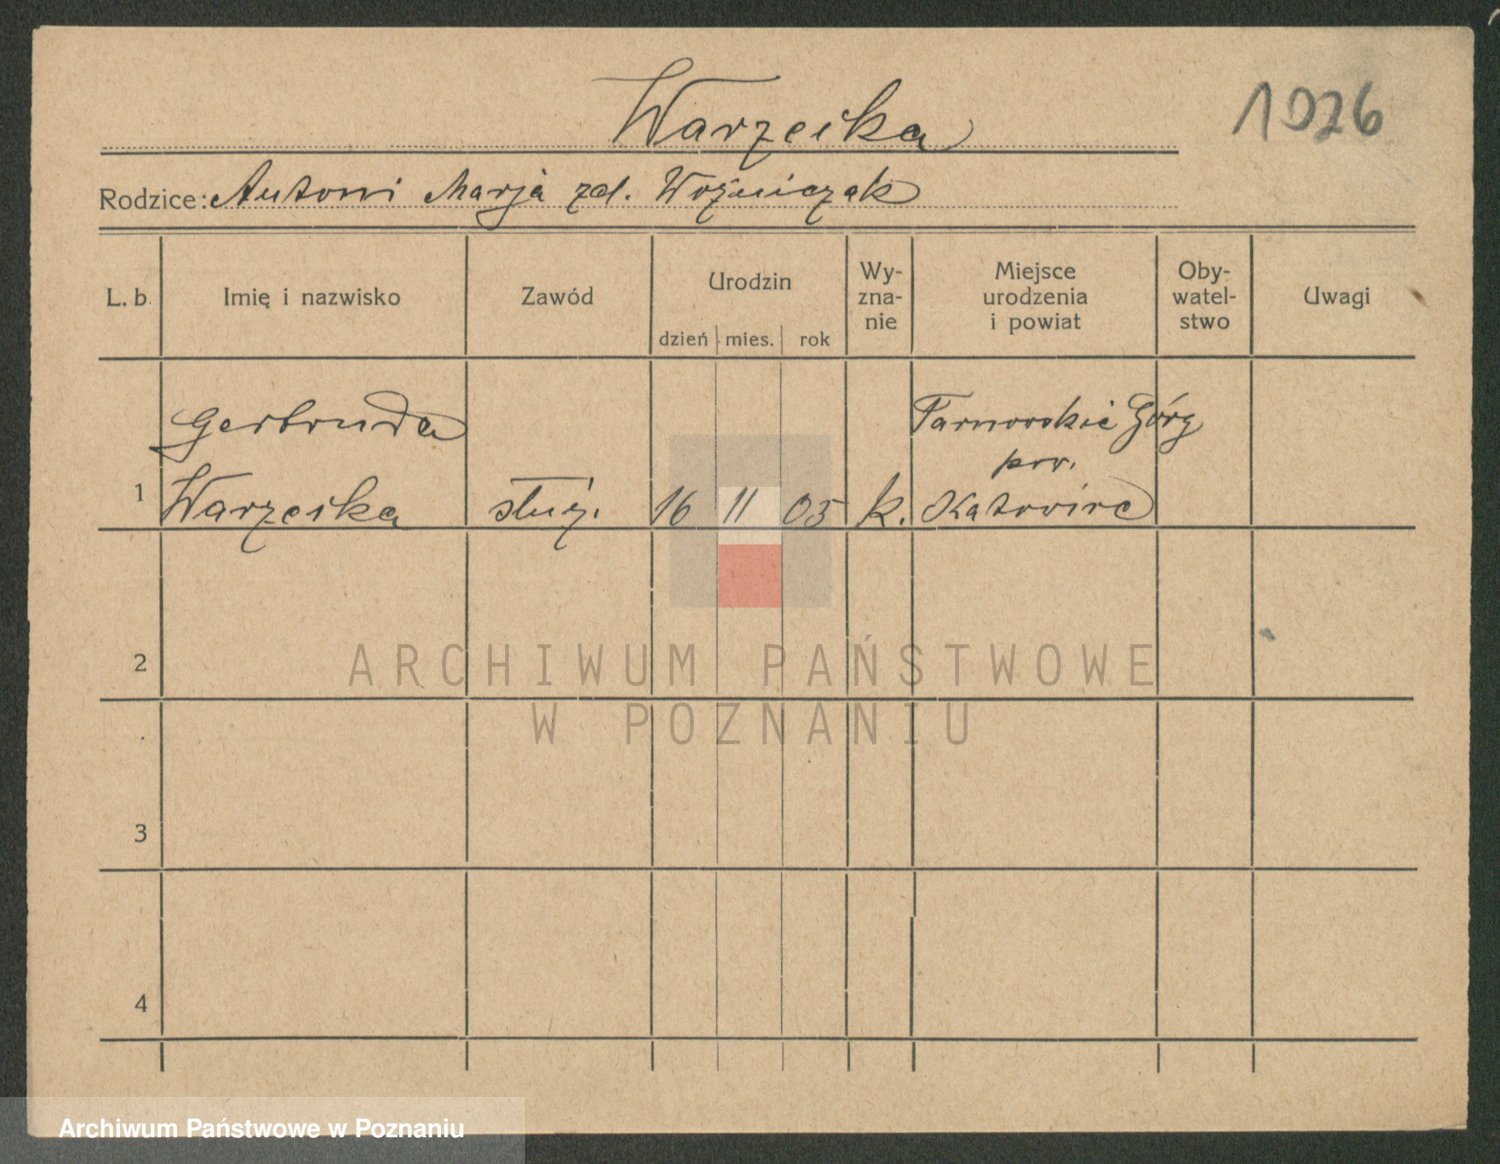 Warzecka
1026
Rodzice: Antoni Marja zd. Woźniczak
L. b.
Imię i nazwisko
Zawód
Urodzin
dzień mies. rok
Wy-
zna-
nie
Miejsce
urodzenia
i powiat
Oby-
watel-
stwo
Uwagi
1
Gertruda
Warzecka
służ.
16 11 05
k.
Tarnowskie Góry
pow.
Katowice
2
3
4
ARCHIWUM PAŃSTWOWE
W POZNANIU
Archiwum Państwowe w Poznaniu